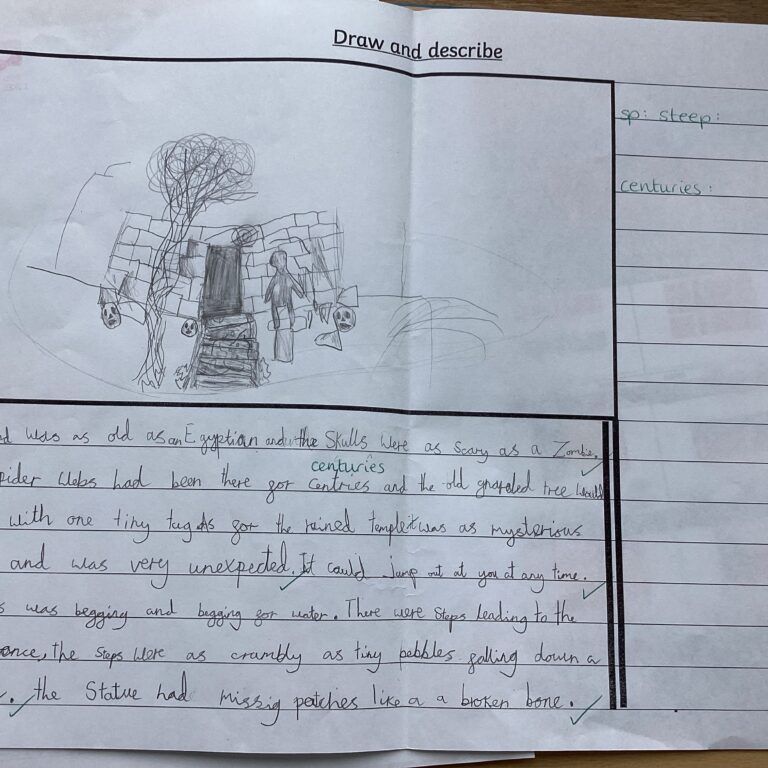 Draw and describe
sp: steep:
centuries:
was as old as an Egyptian and the Skulls were as Scary as a Zombie.
centuries
webs had been there for Centries and the old gnarled tree would
with one tiny tug As for the ruined temple it was as mysterious
and was very unexpected. It could jump out at you at any time.
was begging and begging for water. There were Steps leading to the
the steps were as crambly as tiny pebbles falling down a
. the Statue had missig patches like a a broken bone.